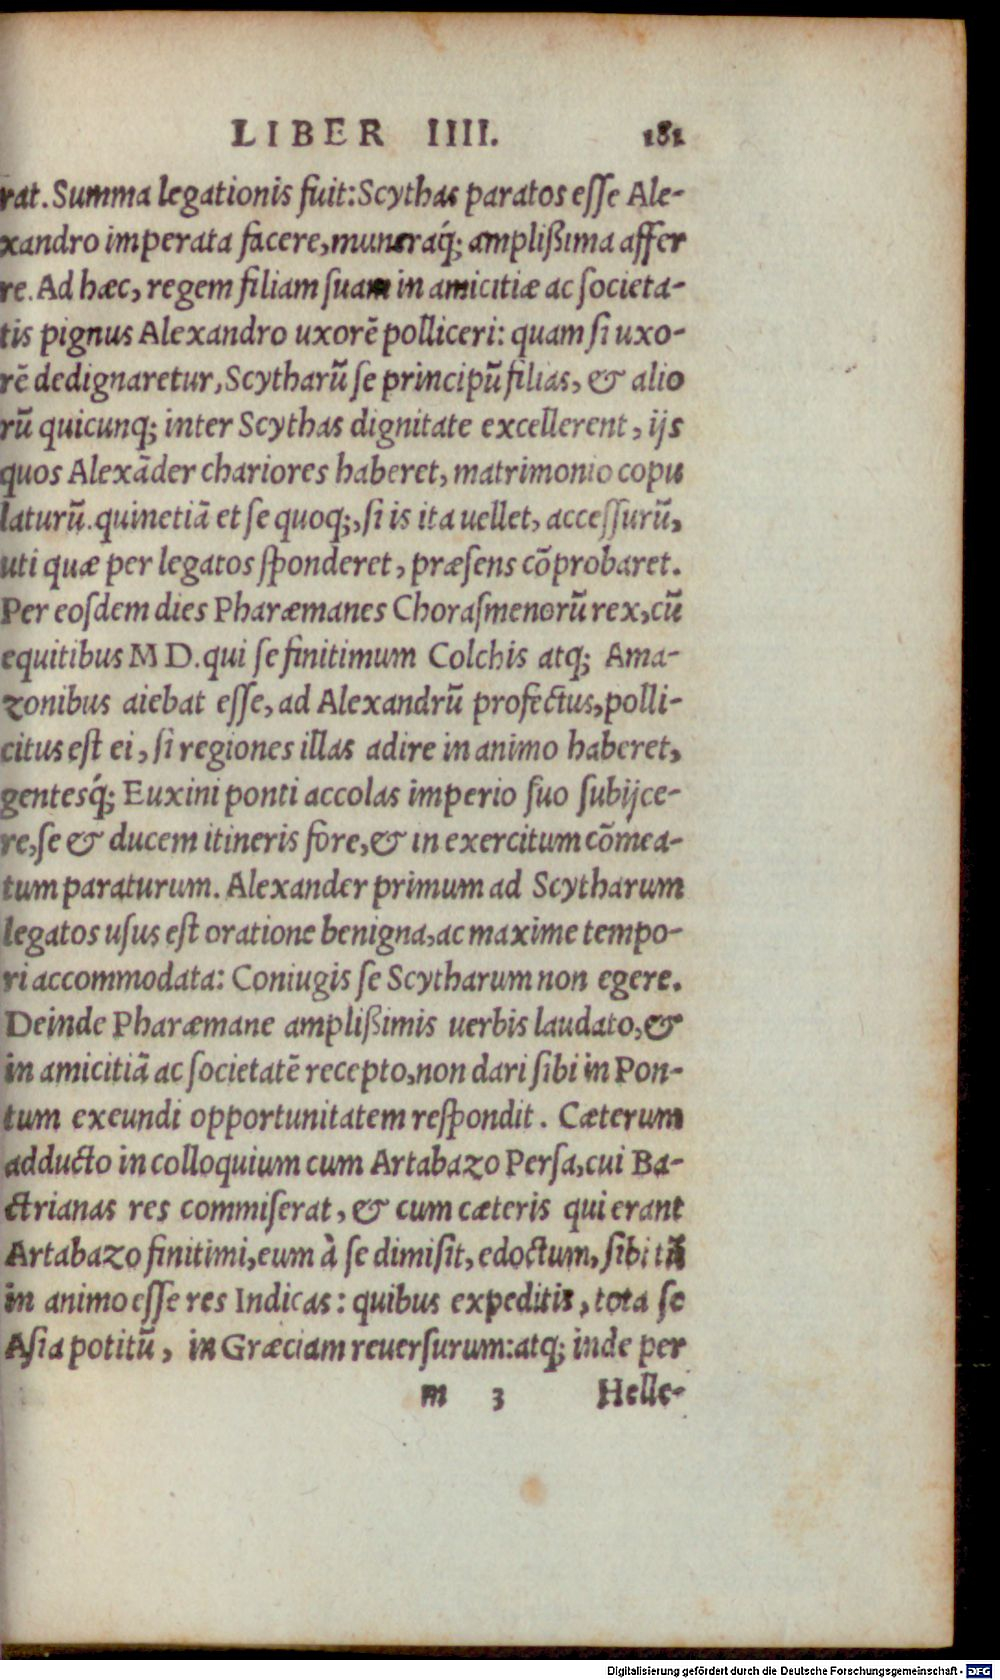 LIBER IIII. 181
rat. Summa legationis fuit: Scythas paratos esse Ale-
xandro imperata facere, muneraq́; amplißima affer
re. Ad hæc, regem filiam suam in amicitiæ ac societa-
tis pignus Alexandro uxorē polliceri: quam si uxo-
rē dedignaretur, Scytharū se principū filias, & alio
rū quicunq; inter Scythas dignitate excellerent, ijs
quos Alexāder chariores haberet, matrimonio copu
laturū. quinetiā et se quoq;, si is ita uellet, accessurū,
uti quæ per legatos sponderet, præsens cōprobaret.
Per eosdem dies Pharæmanes Chorasmenorū rex, cū
equitibus M D. qui se finitimum Colchis atq; Ama-
zonibus aiebat esse, ad Alexandrū profectus, polli-
citus est ei, si regiones illas adire in animo haberet,
gentesq́; Euxini ponti accolas imperio suo subijce-
re, se & ducem itineris fore, & in exercitum cōmea-
tum paraturum. Alexander primum ad Scytharum
legatos usus est oratione benigna, ac maxime tempo-
ri accommodata: Coniugis se Scytharum non egere.
Deinde Pharæmane amplißimis uerbis laudato, &
in amicitiā ac societatē recepto, non dari sibi in Pon-
tum exeundi opportunitatem respondit. Cæterum
adducto in colloquium cum Artabazo Persa, cui Ba-
ctrianas res commiserat, & cum cæteris qui erant
Artabazo finitimi, eum à se dimisit, edoctum, sibi tū
in animo esse res Indicas: quibus expeditis, tota se
Asia potitū, in Græciam reuersurum: atq; inde per
m 3 Helle-
Digitalisierung gefördert durch die Deutsche Forschungsgemeinschaft - DFG